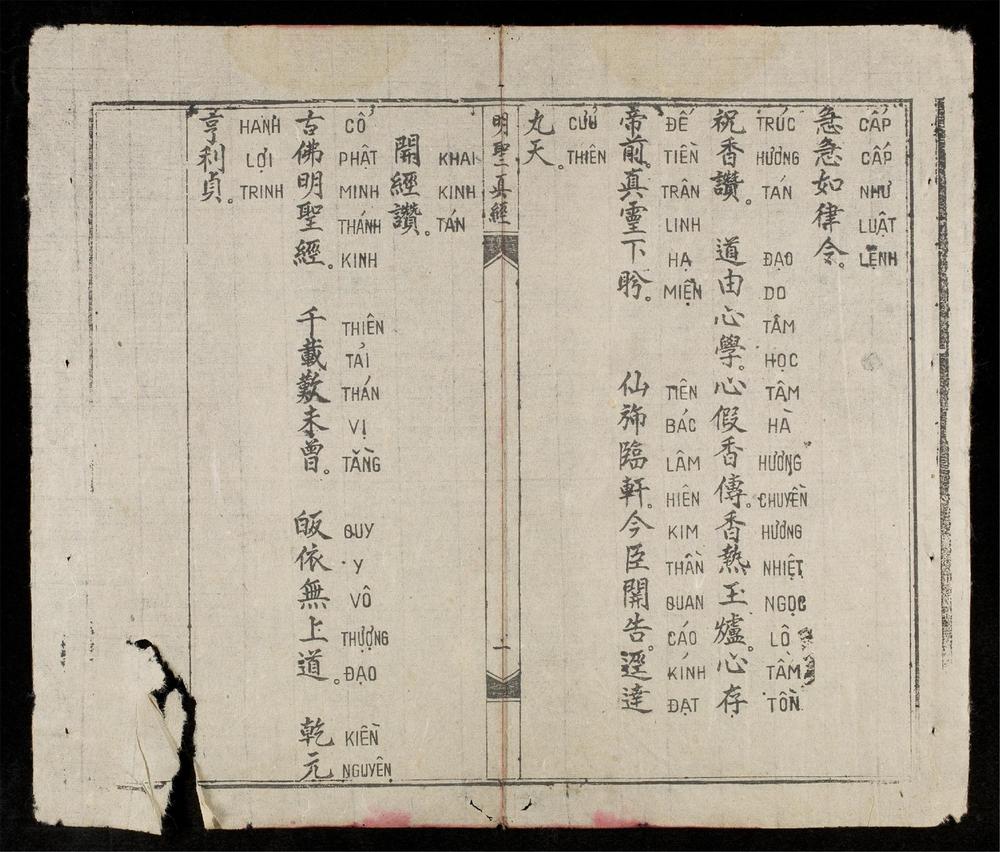 急急如律令。
CẤP CẤP NHƯ LUẬT LỆNH
祝香讚。 道由心學。心假香傳。香熱玉爐。心存
TRÚC HƯƠNG TÁN ĐẠO DO TÂM HỌC TÂM HÀ HƯƠNG CHUYỀN HƯƠNG NHIỆT NGỌC LÔ TÂM TỒN
帝前。真靈下盻。 仙斾臨軒。今臣開告。逕達
ĐẾ TIỀN TRÂN LINH HẠ MIỆN TIÊN BÁC LÂM HIÊN KIM THẦN QUAN CÁO KÍNH ĐẠT
九天。
CỬU THIÊN
明聖真經
一
開經讚。
KHAI KINH TÁN
古佛明聖經。 千載歎未曾。 皈依無上道。 乾元
CỔ PHẬT MINH THÁNH KINH THIÊN TẢI THÁN VỊ TẰNG QUY Y VÔ THƯỢNG ĐẠO KIỀN NGUYÊN
亨利貞。
HANH LỢI TRINH